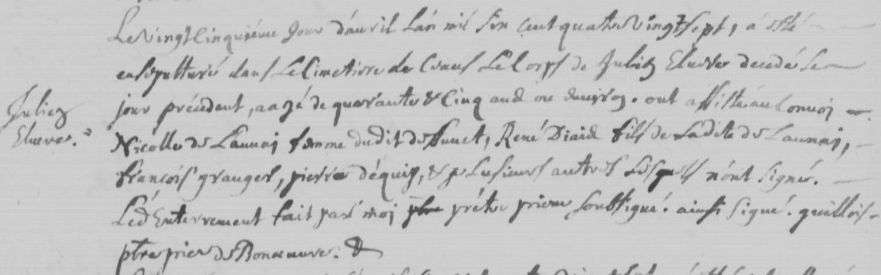 Le vingt cinquiéme jour d'avril l'an mil six cent quatre vingt sept, a esté
ensepulturé dans le Cimetiere de Ceneus le Corps de Julien Eluerve decedé le
Julien
Eluerve.
jour précédent, aagé de quarante & Cinq ans ou environ. ont assisté au Convoi
Nicolle de Launai femme dudit defunct, René Diard fils de ladite de Launai,
francois granger, pierre déquin, & plusieurs autres lesquels n'ont signé.
Led. Enterrement fait par moi prétre prieur soubsigné. ainsi signé. guillois
ptre prieur de Bonneuvre. &